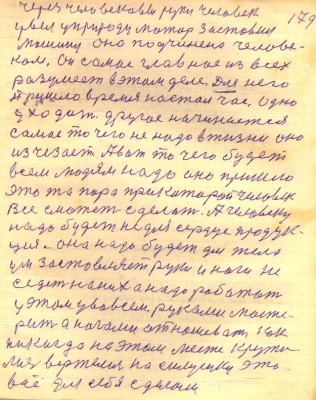 через человековы руки человек 179
умел у природу мотор застовил
машину оно подчинено челове-
ком. Он самое главное из всех
разумеет в этом деле. Для него
пришло время настал час. одно
уходит. другое начинается
самое то чего не надо в жизни оно
изчезает. А вот то чего будет
всем людям надо оно пришло
это та пора при каторой человек
все сможет сделать. А человеку
надо будет не для сердце продук-
ция. она надо будет для тела
ум застовляет руки и ноги не
седет на них а надо работат
у этом у во всем. руками масте-
рит а ногами отношеват. как
никогда на этом месте кружи-
лих вертелих на
всё для себя сделал